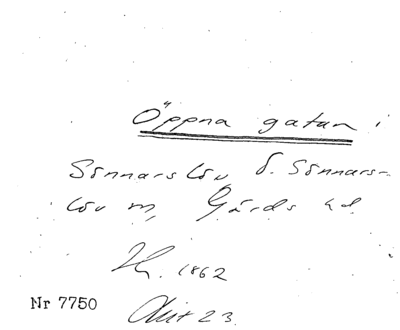 Öppna gatan i
Sönnarslöv, Ö. Sönnars-
löv sn, Gärds hd.
1862
Nr 7750 23.